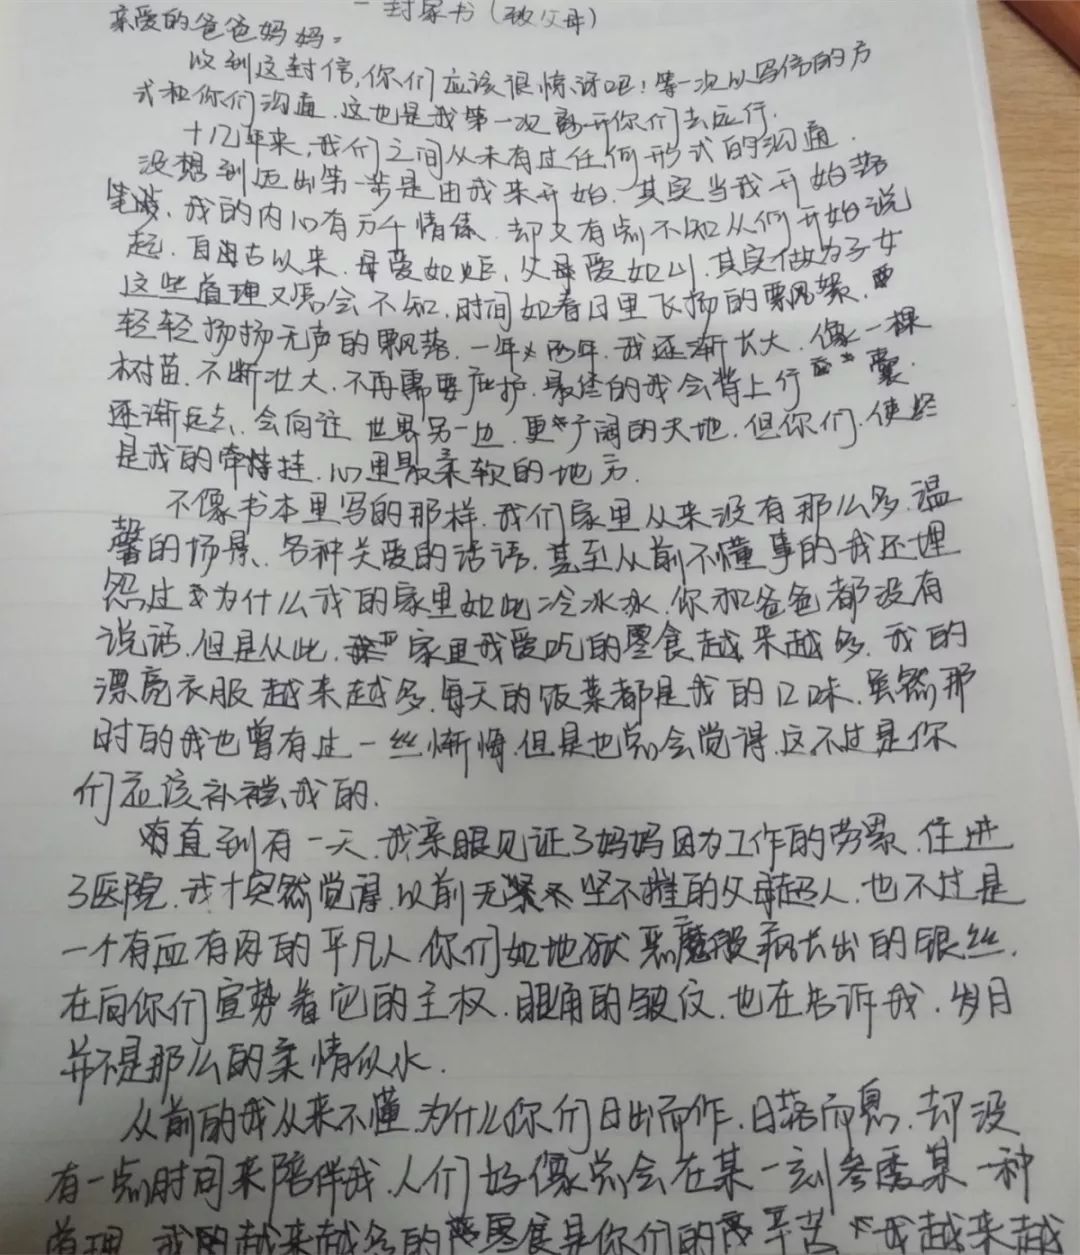 一封家书(致父母)
亲爱的爸爸妈妈。
收到这封信,你们应该很惊讶吧!第一次以写信的方
式和你们沟通,这也是我第一次离开你们去远行.
十几年来,我们之间从未有过任何形式的沟通.
没想到迈出第一步是由我来开始.其实当我开始落
笔时,我的内心有万千情愫,却又有点不知从何开始说
起.自古以来,母爱如炬,父爱如山,其实做为子女
这些道理又怎会不知,时间如春日里飞扬的飘絮,
轻轻扬扬无声的飘落.一年又两年,我逐渐长大,像一棵
树苗,不断壮大,不再需要庇护.最终的我会背上行囊.
逐渐起点,会向往世界另一边,更广阔的天地.但你们,使终
是我的牵挂,心里最柔软的地方.
不像书本里写的那样,我们家里从来没有那么多温
馨的场景、各种关爱的话语,甚至从前不懂事的我还埋
怨过为什么我的家里如此冷冰冰,你和爸爸都没有
说话,但是从此,家里我爱吃的零食越来越多,我的
漂亮衣服越来越多,每天的饭菜都是我的口味.虽然那
时的我也曾有过一丝惭悔,但是也总会觉得,这不过是你
们应该补偿我的.
直到有一天,我亲眼见证了妈妈因为工作的劳累,住进
了医院,我才突然觉得,以前无坚不摧的父母超人,也不过是
一个有血有肉的平凡人,你们如地狱恶魔般疯长出的银丝,
在向你们宣势着它的主权,眼角的皱纹,也在告诉我,岁月
并不是那么的柔情似水.
从前的我从来不懂,为什么你们日出而作,日落而息,却没
有一点时间来陪伴我,人们好像总会在某一刻参透某一种
道理,我的越来越多的零食是你们的辛苦,我越来越